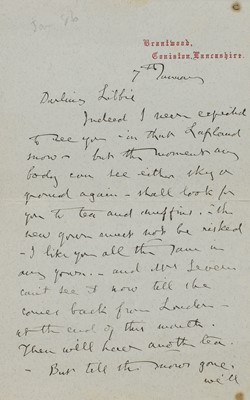 Jan 96
Brantwood,
Coniston, Lancashire.
7th January
Darling Libbie
Indeed I never expected
to see you in that Lapland
snow - but the moment any
body can see either sky or
ground again - I shall look for
you to tea and muffins - The
new gown must not be risked
- I like you all the same in
any gown. - and Mrs Severn
can't see it now till she
comes back from London -
at the end of this month.
Then we'll have another tea.
- But till the snow's gone,
we'll